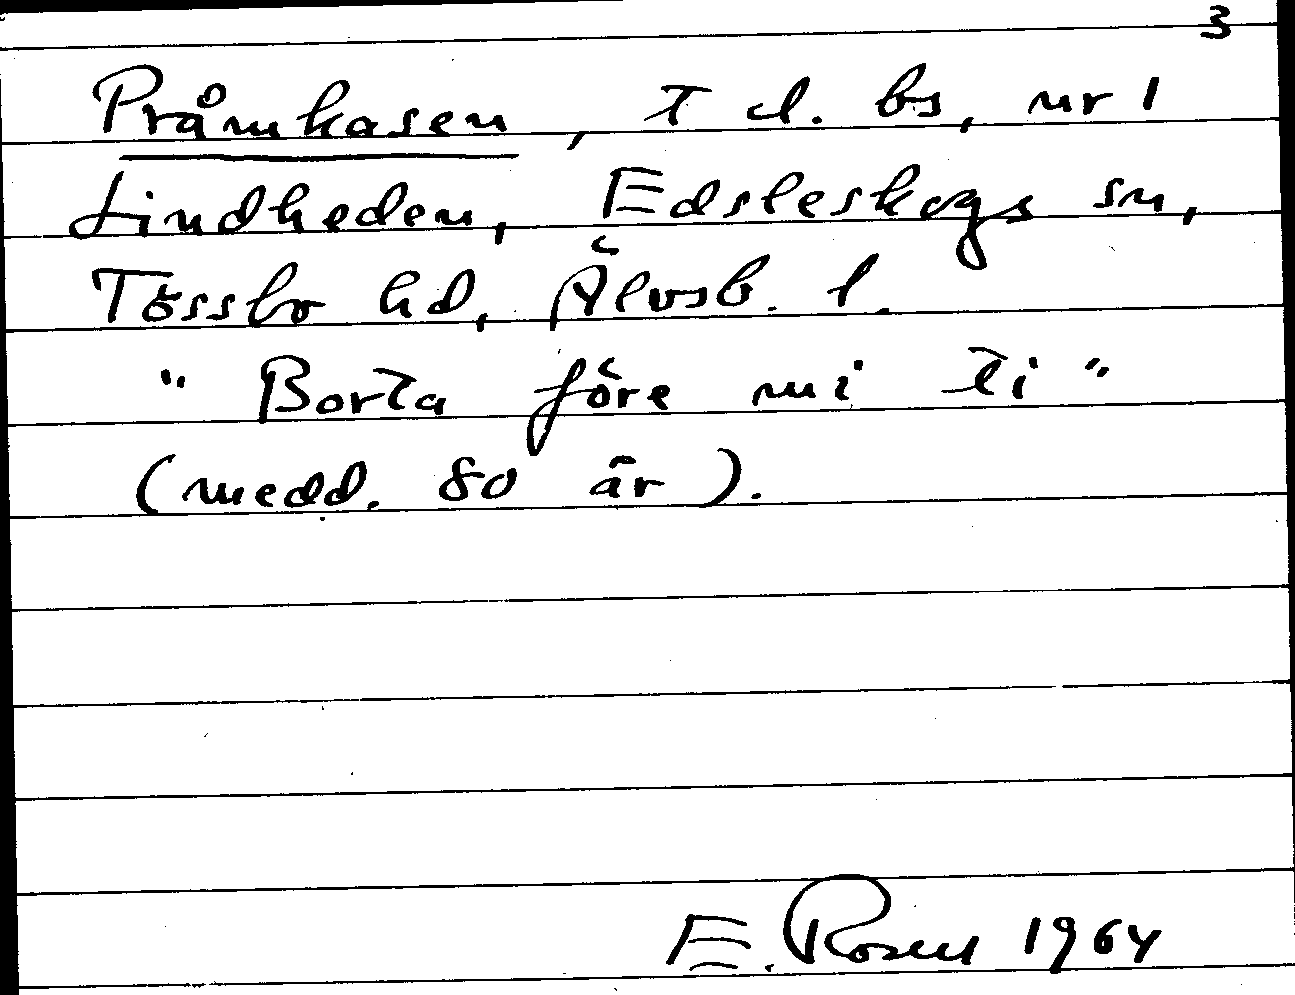 3
Pråmkasen, t d. bs, nr 1
Lindheden, Edsleskogs sn,
Tössbo hd, Älvsb. l.
" Borta före mi ti "
(medd. 80 år ).
E. Rosell 1964